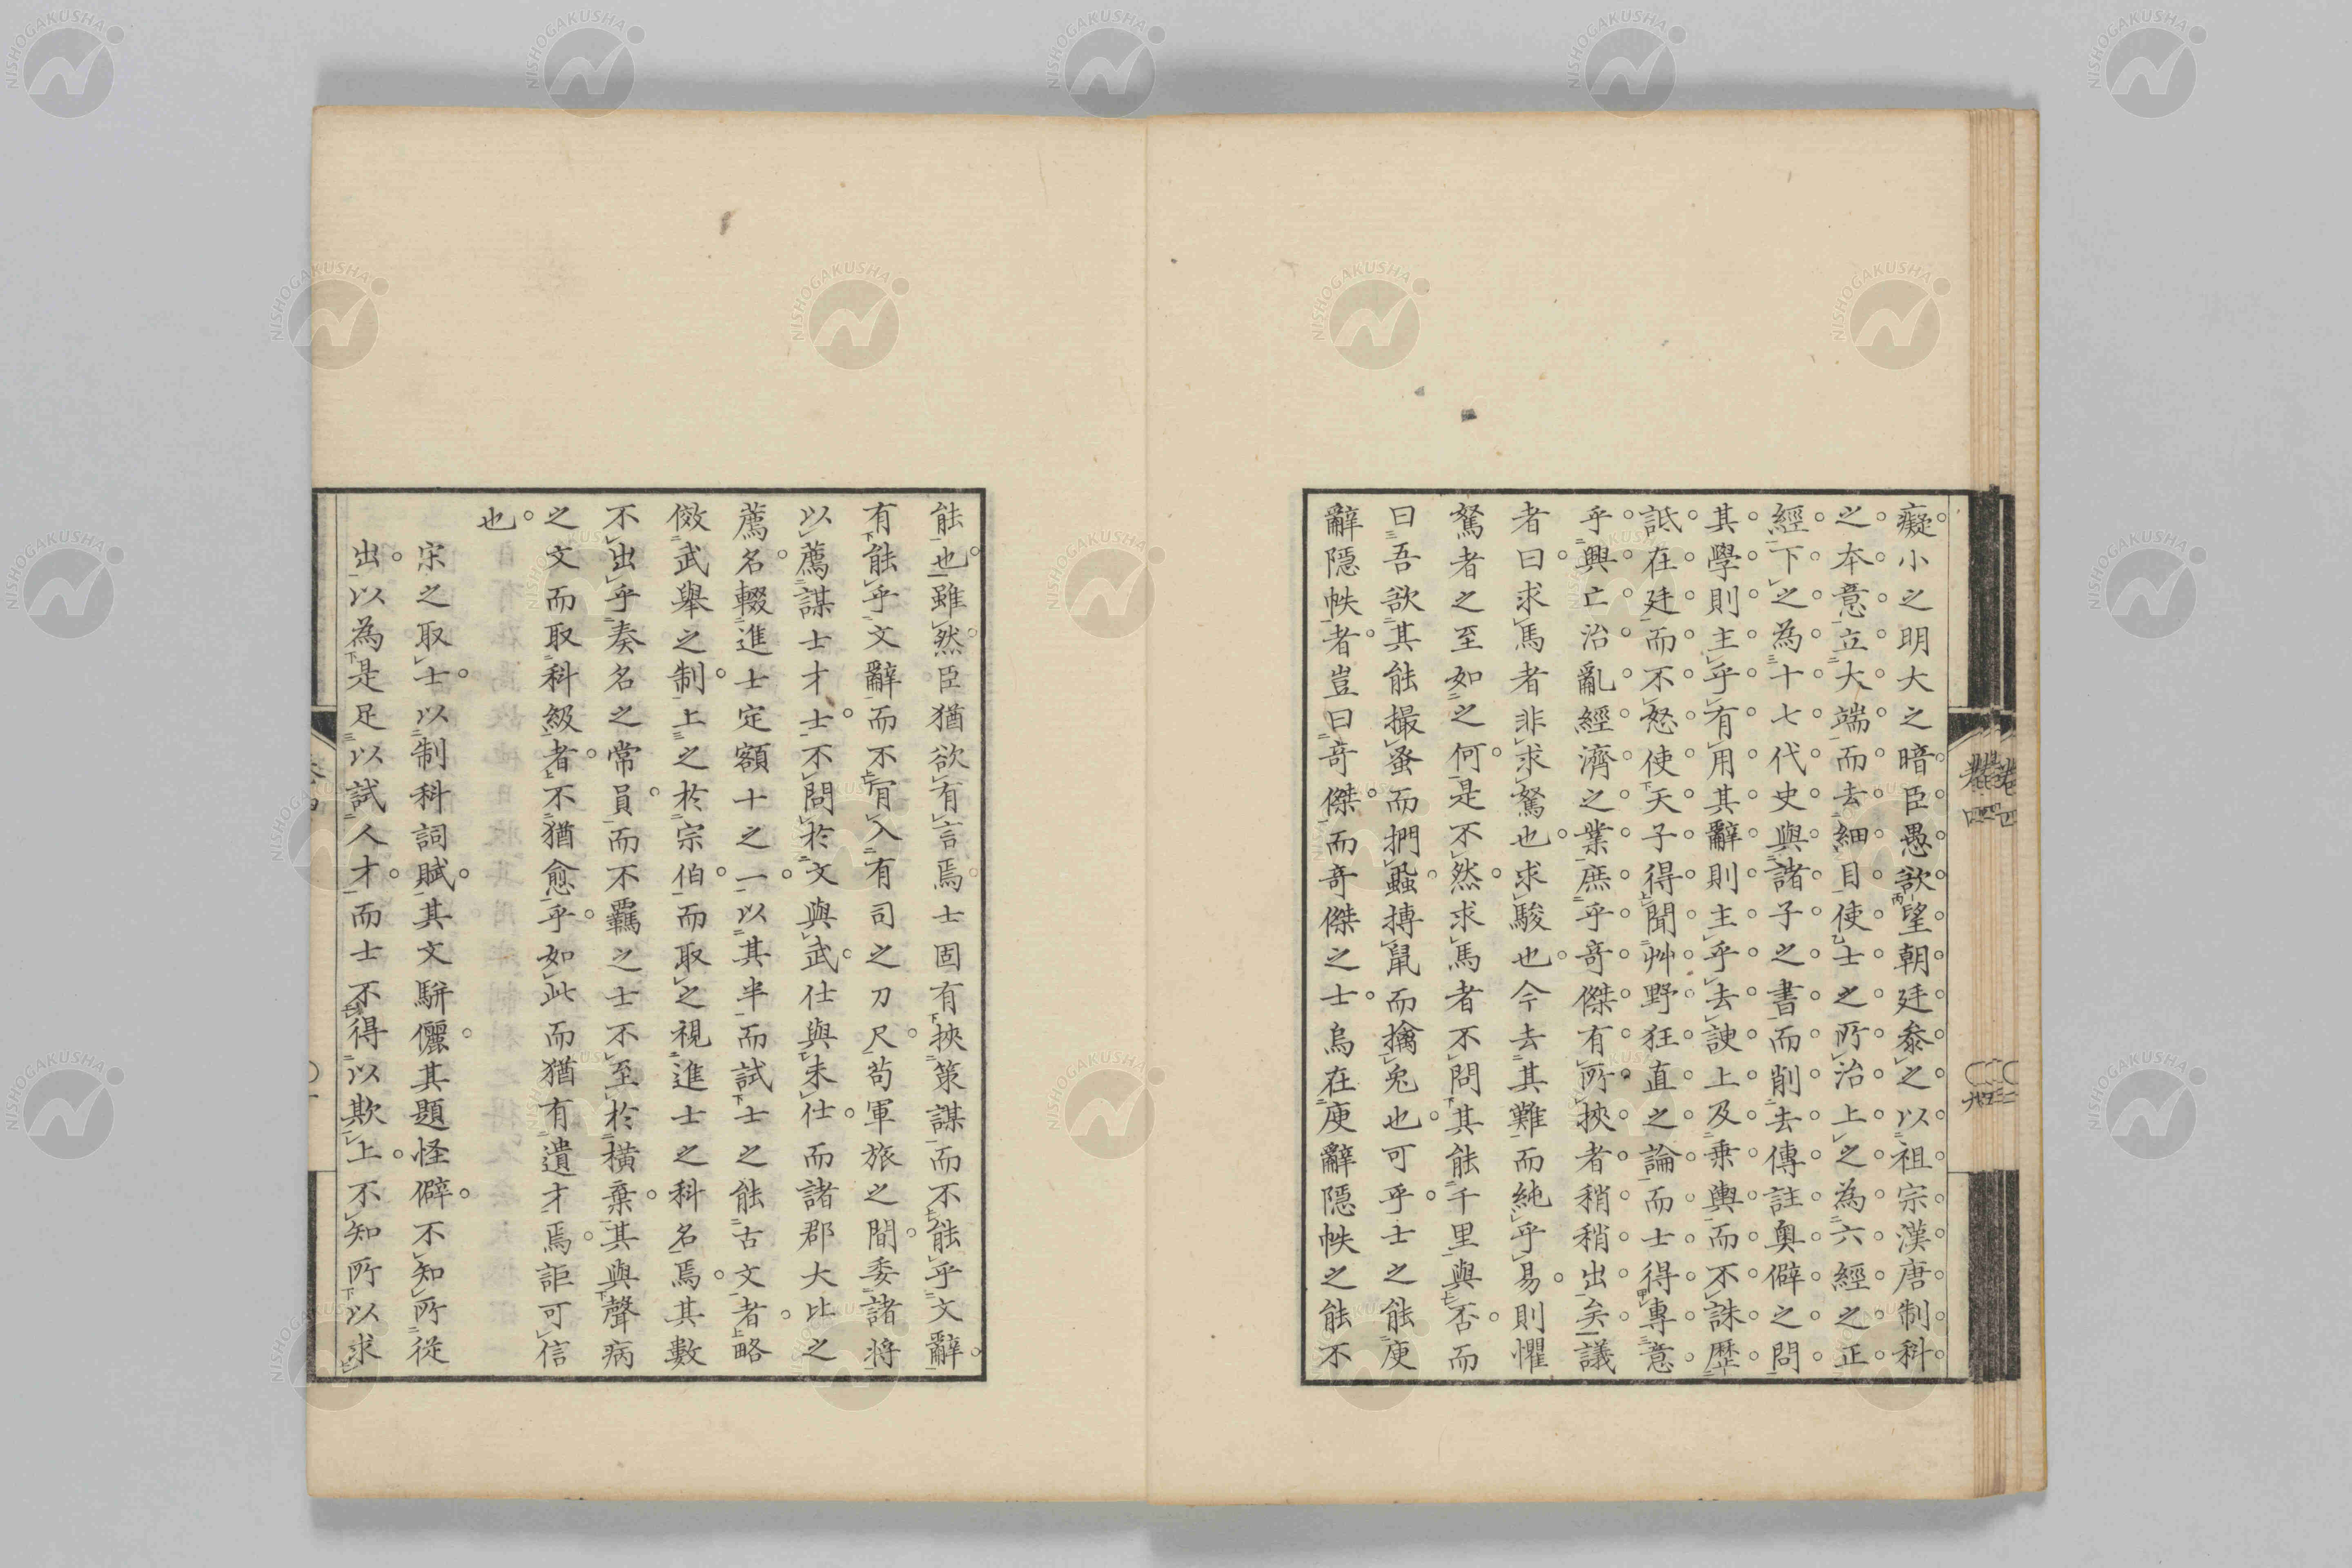 癡小之明大之暗臣愚欲望朝廷叅之以祖宗漢唐制科
之本意立大端而去細目使士之所治上之為六經之正
經下之為十七代史與諸子之書而削去傳註奧僻之問
其學則主乎有用其辭則主乎去諛上及乗輿而不誅歷
詆在廷而不怒使天子得聞艸野狂直之論而士得專意
乎興亡治亂經濟之業庶乎竒傑有所挾者稍稍出矣議
者曰求馬者非求駑也求駿也今去其難而純乎易則懼
駑者之至如之何是不然求馬者不問其能千里與否而
曰吾欲其能撮蚤而捫蝨搏鼠而擒兎也可乎士之能庾
辭隠帙者豈曰竒傑而竒傑之士烏在庾辭隠帙之能不
能也雖然臣猶欲有言焉士固有挾策謀而不能乎文辭
有能乎文辭而不肎入有司之刀尺苟軍旅之間委諸将
以薦謀士才士不問於文與武仕與未仕而諸郡大比之
薦名輟進士定額十之一以其半而試士之能古文者略
倣武舉之制上之於宗伯而取之視進士之科名焉其數
不出乎奏名之常員而不羈之士不至於横棄其與聲病
之文而取科級者不猶愈乎如此而猶有遺才焉詎可信
也
宋之取士以制科詞賦其文駢儷其題怪僻不知所從
出以為是足以試人才而士不得以欺上不知所以求
卷四
NISHOGAKUSHA